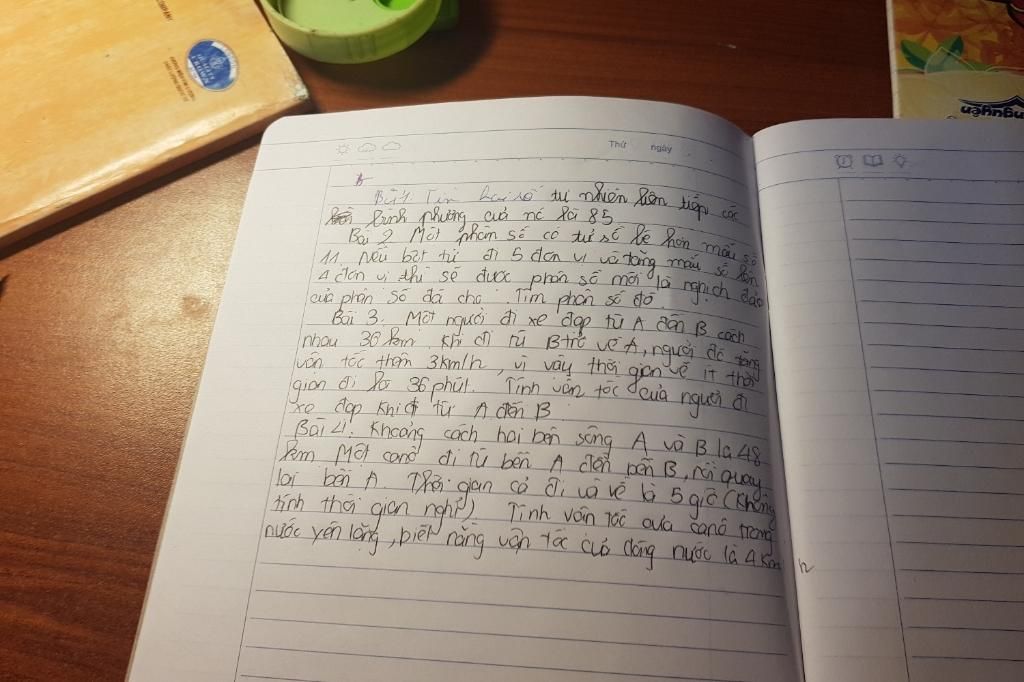 Thứ ngày
Bài 1. Tìm hai số tự nhiên liên tiếp các
bình phường của nó là 85
Bài 2 Một phân số có tử số bé hơn mẫu số
11. nếu bớt tử đi 5 đơn vị và tăng mẫu số lên
4 đơn vị thì sẽ được phân số mới là nghịch đảo
của phân số đã cho. Tìm phân số đó
Bài 3. Một người đi xe đạp từ A đến B cách
nhau 36 km. Khi đi từ B trở về A, người đó tăng
vận tốc thêm 3km/h, vì vậy thời gian về ít thời
gian đi là 36 phút. Tính vận tốc của người đi
xe đạp khi đi từ A đến B
Bài 4. Khoảng cách hai bến sông A và B là 48
km Một canô đi từ bến A đến bến B, rồi quay
lại bến A. Thời gian cả đi và về là 5 giờ (không
tính thời gian nghỉ) Tính vận tốc của canô trong
nước yên lặng, biết rằng vận tốc của dòng nước là 4 km
h
nguyên